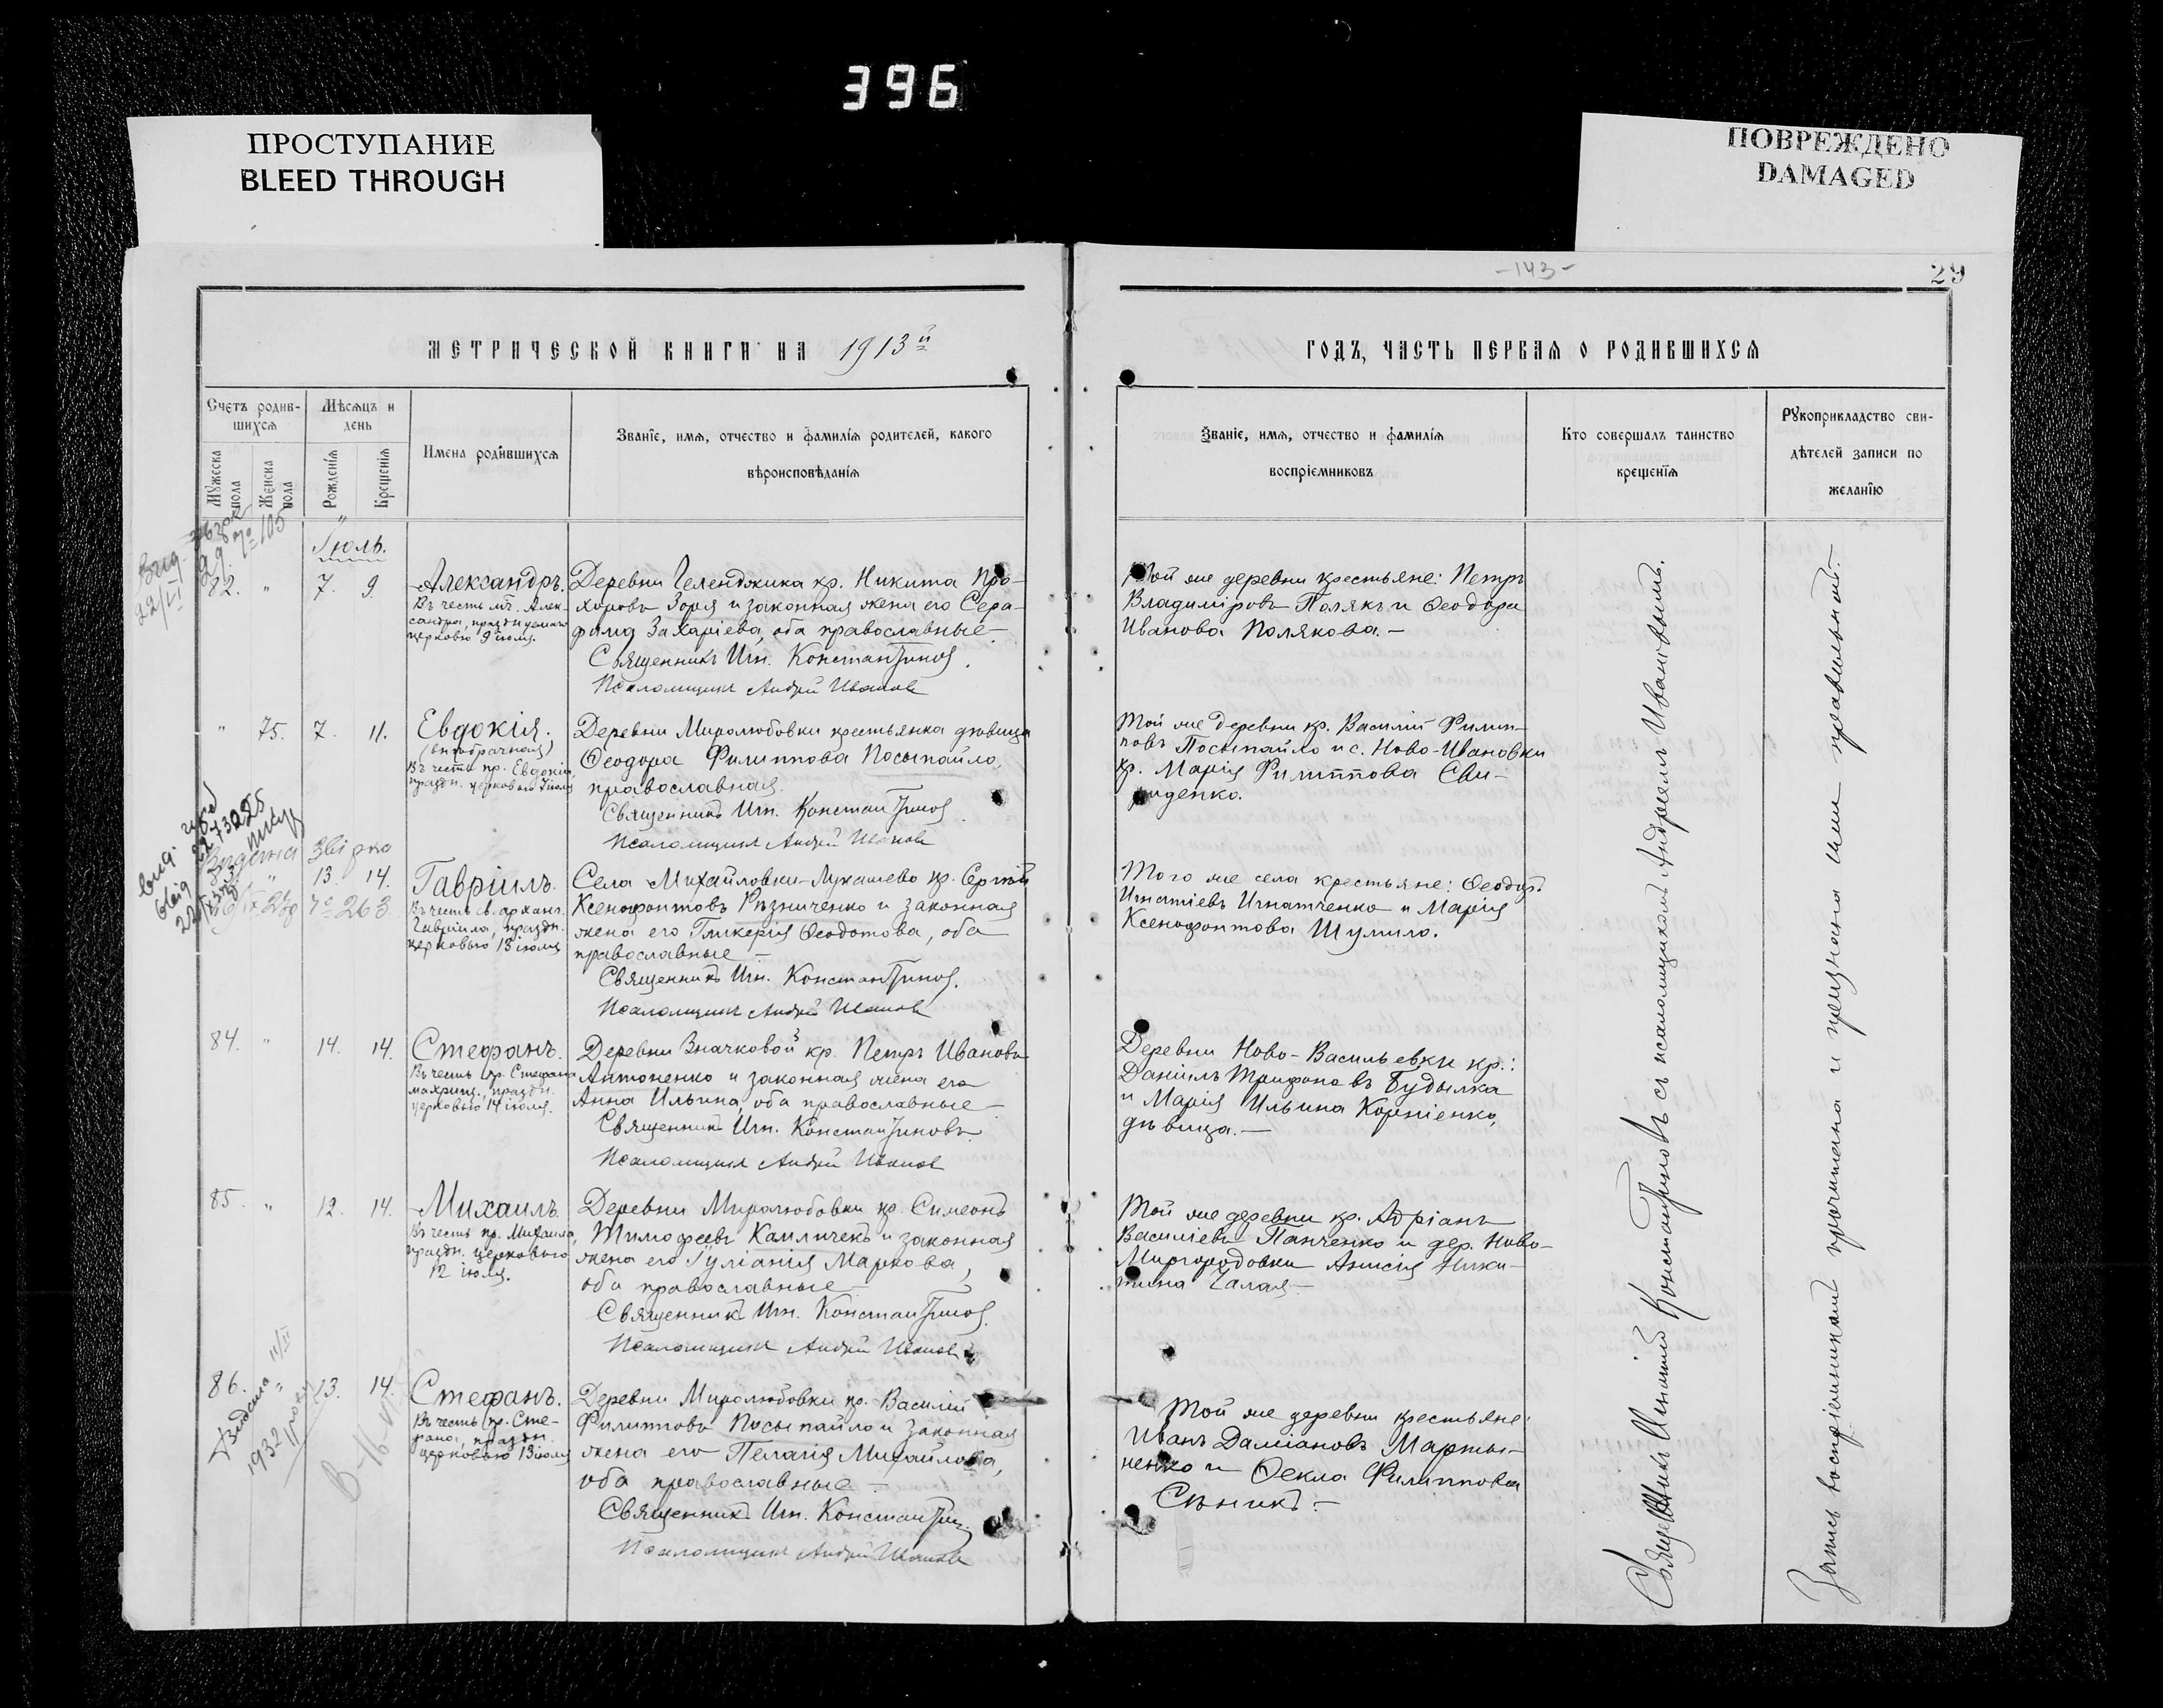 396
ПРОСТУПАНИЕ
BLEED THROUGH
ПОВРЕЖДЕНО
DAMAGED
-143-
29
МЕТРИЧЕСКОЙ КНИГИ НА 1913й
ГОДЪ, ЧАСТЬ ПЕРВАЯ О РОДИВШИХСЯ
Счетъ родив-
шихся
Мѣсяцъ и
день
Мужеска пола
Женска пола
Рожденія
Крещенія
Имена родившихся
Званіе, имя, отчество и фамилія родителей, какого
вѣроисповѣданія
Званіе, имя, отчество и фамилія
воспріемниковъ
Кто совершалъ таинство
крещенія
Рукоприкладство сви-
дѣтелей записи по
желанію
Іюль.
82. " 7. 9.
Александръ.
Въ честь мч. Алек-
сандра, празднуемаго
церковью 9 іюля.
Деревни Геленджика кр. Никита Про-
хоровъ Зоря и законная жена его Сера-
фима Захаріева, оба православные
Священникъ Игн. Константинов.
Псаломщикъ Андрей Иванов
Той же деревни крестьяне: Петръ
Владиміровъ Полякъ и Ѳеодора
Иванова Полякова.-
" 75. 7. 11.
Евдокія.
(внѣбрачная)
Въ честь пр. Евдокіи,
праздн. церковью 7 іюля
Деревни Миролюбовки крестьянка дѣвица
Ѳеодора Филиппова Посыпайло,
православная.
Священникъ Игн. Константинов
Псаломщикъ Андрей Иванов
Той же деревни кр. Василій Филип-
повъ Посыпайло и с. Ново-Ивановки
кр. Марія Филиппова Сви-
риденко.
Видана звірка
13. 14.
№ 263
Гавріилъ.
Въ честь св. архан.
Гавріила, праздн.
церковью 13 іюля
Села Михайловки-Лукашево кр. Сергій
Ксенофонтовъ Рѣзниченко и законная
жена его Гликерія Ѳеодотова, оба
православные -
Священникъ Игн. Константинов.
Псаломщикъ Андрей Иванов
Того же села крестьяне: Ѳеодоръ
Игнатіевъ Игнатченко и Марія
Ксенофонтова Шумило.
84. " 14. 14.
Стефанъ.
Въ честь пр. Стефана
махрищ., праздн.
церковью 14 іюля.
Деревни Значковой кр. Петръ Ивановъ
Антоненко и законная жена его
Анна Ильина, оба православные
Священникъ Игн. Константиновъ.
Псаломщикъ Андрей Иванов
Деревни Ново-Васильевки кр.:
Даніилъ Трифоновъ Будылка
и Марія Ильина Корніенко,
дѣвица.-
85. " 12. 14.
Михаилъ.
Въ честь пр. Михаила,
праздн. церковью
12 іюля.
Деревни Миролюбовки кр. Симеонъ
Тимофеевъ Камличекъ и законная
жена его Іуліанія Маркова,
оба православные
Священникъ Игн. Константинов.
Псаломщикъ Андрей Иванов
Той же деревни кр. Адріанъ
Василіевъ Панченко и дер. Ново-
Миргородовки Анисія Ники-
тина Чалая.-
86. " 13. 14.
Видана
1932 року
Стефанъ.
Въ честь пр. Сте-
фана, праздн.
церковью 13 іюля
Деревни Миролюбовки кр. Василій
Филипповъ Посыпайло и законная
жена его Пелагія Михайлова,
оба православные -
Священникъ Игн. Константин.
Псаломщикъ Андрей Иванов
Той же деревни крестьяне:
Иванъ Даміановъ Марты-
ненко и Ѳекла Филиппова
Сѣникъ.-
Священникъ Игнатій Константиновъ съ псаломщикомъ Андреемъ Ивановымъ.
Запись воспріемниками прочитана и признана ими правильной.-